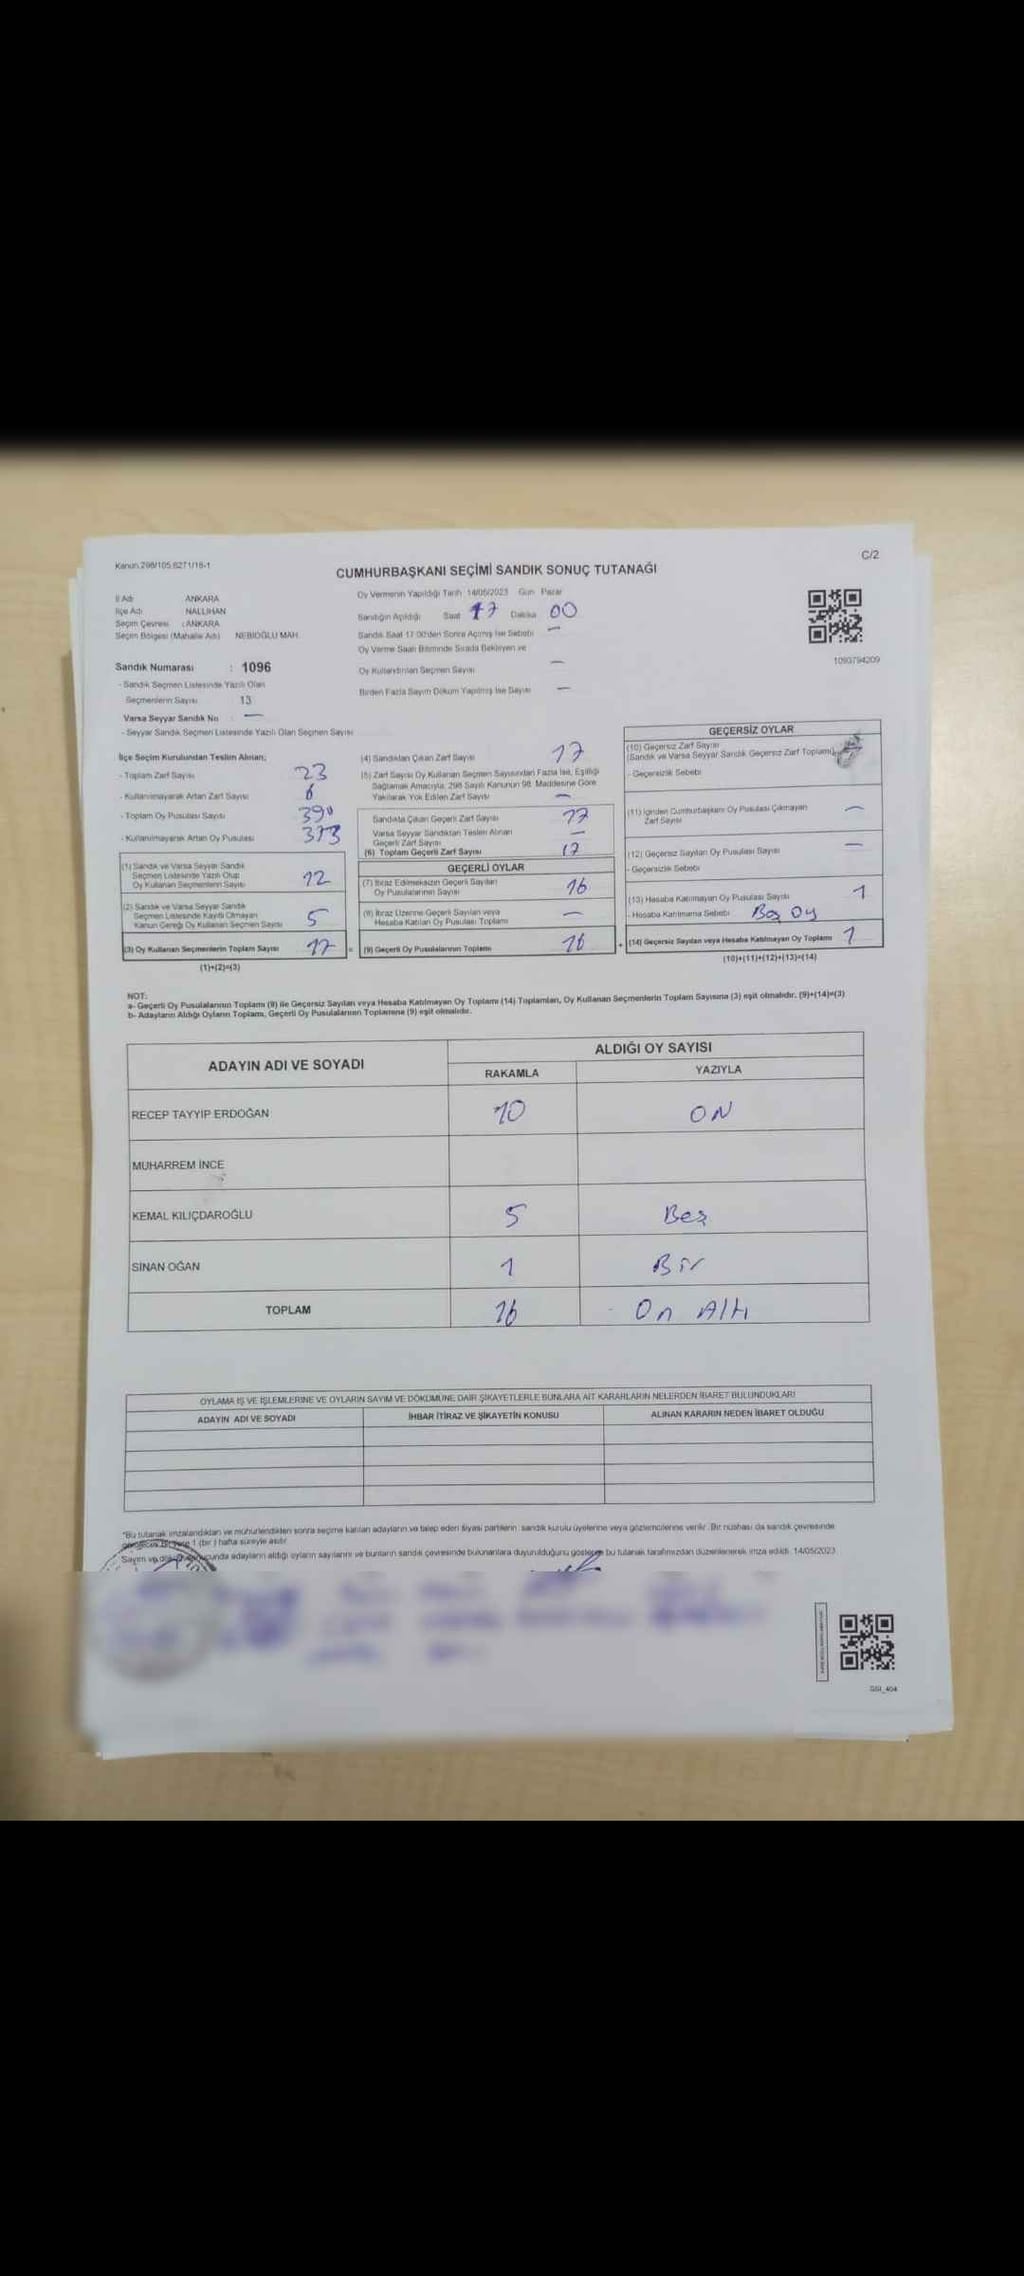 Kanun.298/105.6271/18-1
C/2
CUMHURBAŞKANI SEÇİMİ SANDIK SONUÇ TUTANAĞI
İl Adı ANKARA
İlçe Adı NALLIHAN
Seçim Çevresi : ANKARA
Seçim Bölgesi (Mahalle Adı) NEBİOĞLU MAH.
Sandık Numarası : 1096
- Sandık Seçmen Listesinde Yazılı Olan
Seçmenlerin Sayısı 13
Varsa Seyyar Sandık No : —
- Seyyar Sandık Seçmen Listesinde Yazılı Olan Seçmen Sayısı
Oy Vermenin Yapıldığı Tarih 14/05/2023 Gün Pazar
Sandığın Açıldığı Saat 17 Dakika 00
Sandık Saat 17.00'den Sonra Açılmış İse Sebebi —
Oy Verme Saati Bitiminde Sırada Bekleyen ve
Oy Kullandırılan Seçmen Sayısı —
Birden Fazla Sayım Döküm Yapılmış İse Sayısı —
1093794209
İlçe Seçim Kurulundan Teslim Alınan;
- Toplam Zarf Sayısı 23
- Kullanılmayarak Artan Zarf Sayısı 6
- Toplam Oy Pusulası Sayısı 390
- Kullanılmayarak Artan Oy Pusulası 373
(1) Sandık ve Varsa Seyyar Sandık
Seçmen Listesinde Yazılı Olup
Oy Kullanan Seçmenlerin Sayısı 12
(2) Sandık ve Varsa Seyyar Sandık
Seçmen Listesinde Kayıtlı Olmayan
Kanun Gereği Oy Kullanan Seçmen Sayısı 5
(3) Oy Kullanan Seçmenlerin Toplam Sayısı 17 =
(1)+(2)=(3)
(4) Sandıktan Çıkan Zarf Sayısı 17
(5) Zarf Sayısı Oy Kullanan Seçmen Sayısından Fazla İse, Eşitliği
Sağlamak Amacıyla, 298 Sayılı Kanunun 98. Maddesine Göre
Yakılarak Yok Edilen Zarf Sayısı —
Sandıkta Çıkan Geçerli Zarf Sayısı 17
Varsa Seyyar Sandıktan Teslim Alınan
Geçerli Zarf Sayısı —
(6) Toplam Geçerli Zarf Sayısı 17
GEÇERLİ OYLAR
(7) İtiraz Edilmeksizin Geçerli Sayılan
Oy Pusulalarının Sayısı 16
(8) İtiraz Üzerine Geçerli Sayılan veya
Hesaba Katılan Oy Pusulası Toplamı —
(9) Geçerli Oy Pusulalarının Toplamı 16 +
GEÇERSİZ OYLAR
(10) Geçersiz Zarf Sayısı
(Sandık ve Varsa Seyyar Sandık Geçersiz Zarf Toplamı)
- Geçersizlik Sebebi
(11) İçinden Cumhurbaşkanı Oy Pusulası Çıkmayan
Zarf Sayısı —
(12) Geçersiz Sayılan Oy Pusulası Sayısı —
- Geçersizlik Sebebi
(13) Hesaba Katılmayan Oy Pusulası Sayısı 1
- Hesaba Katılmama Sebebi Boş Oy
(14) Geçersiz Sayılan veya Hesaba Katılmayan Oy Toplamı 1
(10)+(11)+(12)+(13)=(14)
NOT:
a- Geçerli Oy Pusulalarının Toplamı (9) ile Geçersiz Sayılan veya Hesaba Katılmayan Oy Toplamı (14) Toplamları, Oy Kullanan Seçmenlerin Toplam Sayısına (3) eşit olmalıdır. (9)+(14)=(3)
b- Adayların Aldığı Oyların Toplamı, Geçerli Oy Pusulalarının Toplamına (9) eşit olmalıdır.
ADAYIN ADI VE SOYADI
ALDIĞI OY SAYISI
RAKAMLA YAZIYLA
RECEP TAYYİP ERDOĞAN 10 ON
MUHARREM İNCE
KEMAL KILIÇDAROĞLU 5 Beş
SİNAN OĞAN 1 Bir
TOPLAM 16 On Altı
OYLAMA İŞ VE İŞLEMLERİNE VE OYLARIN SAYIM VE DÖKÜMÜNE DAİR ŞİKAYETLERLE BUNLARA AİT KARARLARIN NELERDEN İBARET BULUNDUKLARI
ADAYIN ADI VE SOYADI İHBAR İTİRAZ VE ŞİKAYETİN KONUSU ALINAN KARARIN NEDEN İBARET OLDUĞU
*Bu tutanak imzalandıktan ve mühürlendikten sonra seçime katılan adayların ve talep eden siyasi partilerin sandık kurulu üyelerine veya gözlemcilerine verilir. Bir nüshası da sandık çevresinde
1 (bir ) hafta süreyle asılır.
Sayım ve adayların aldığı oyların sayılarını ve bunların sandık çevresinde bulunanlara duyurulduğunu gösteren bu tutanak tarafımızdan düzenlenerek imza edildi. 14/05/2023
GSI_404